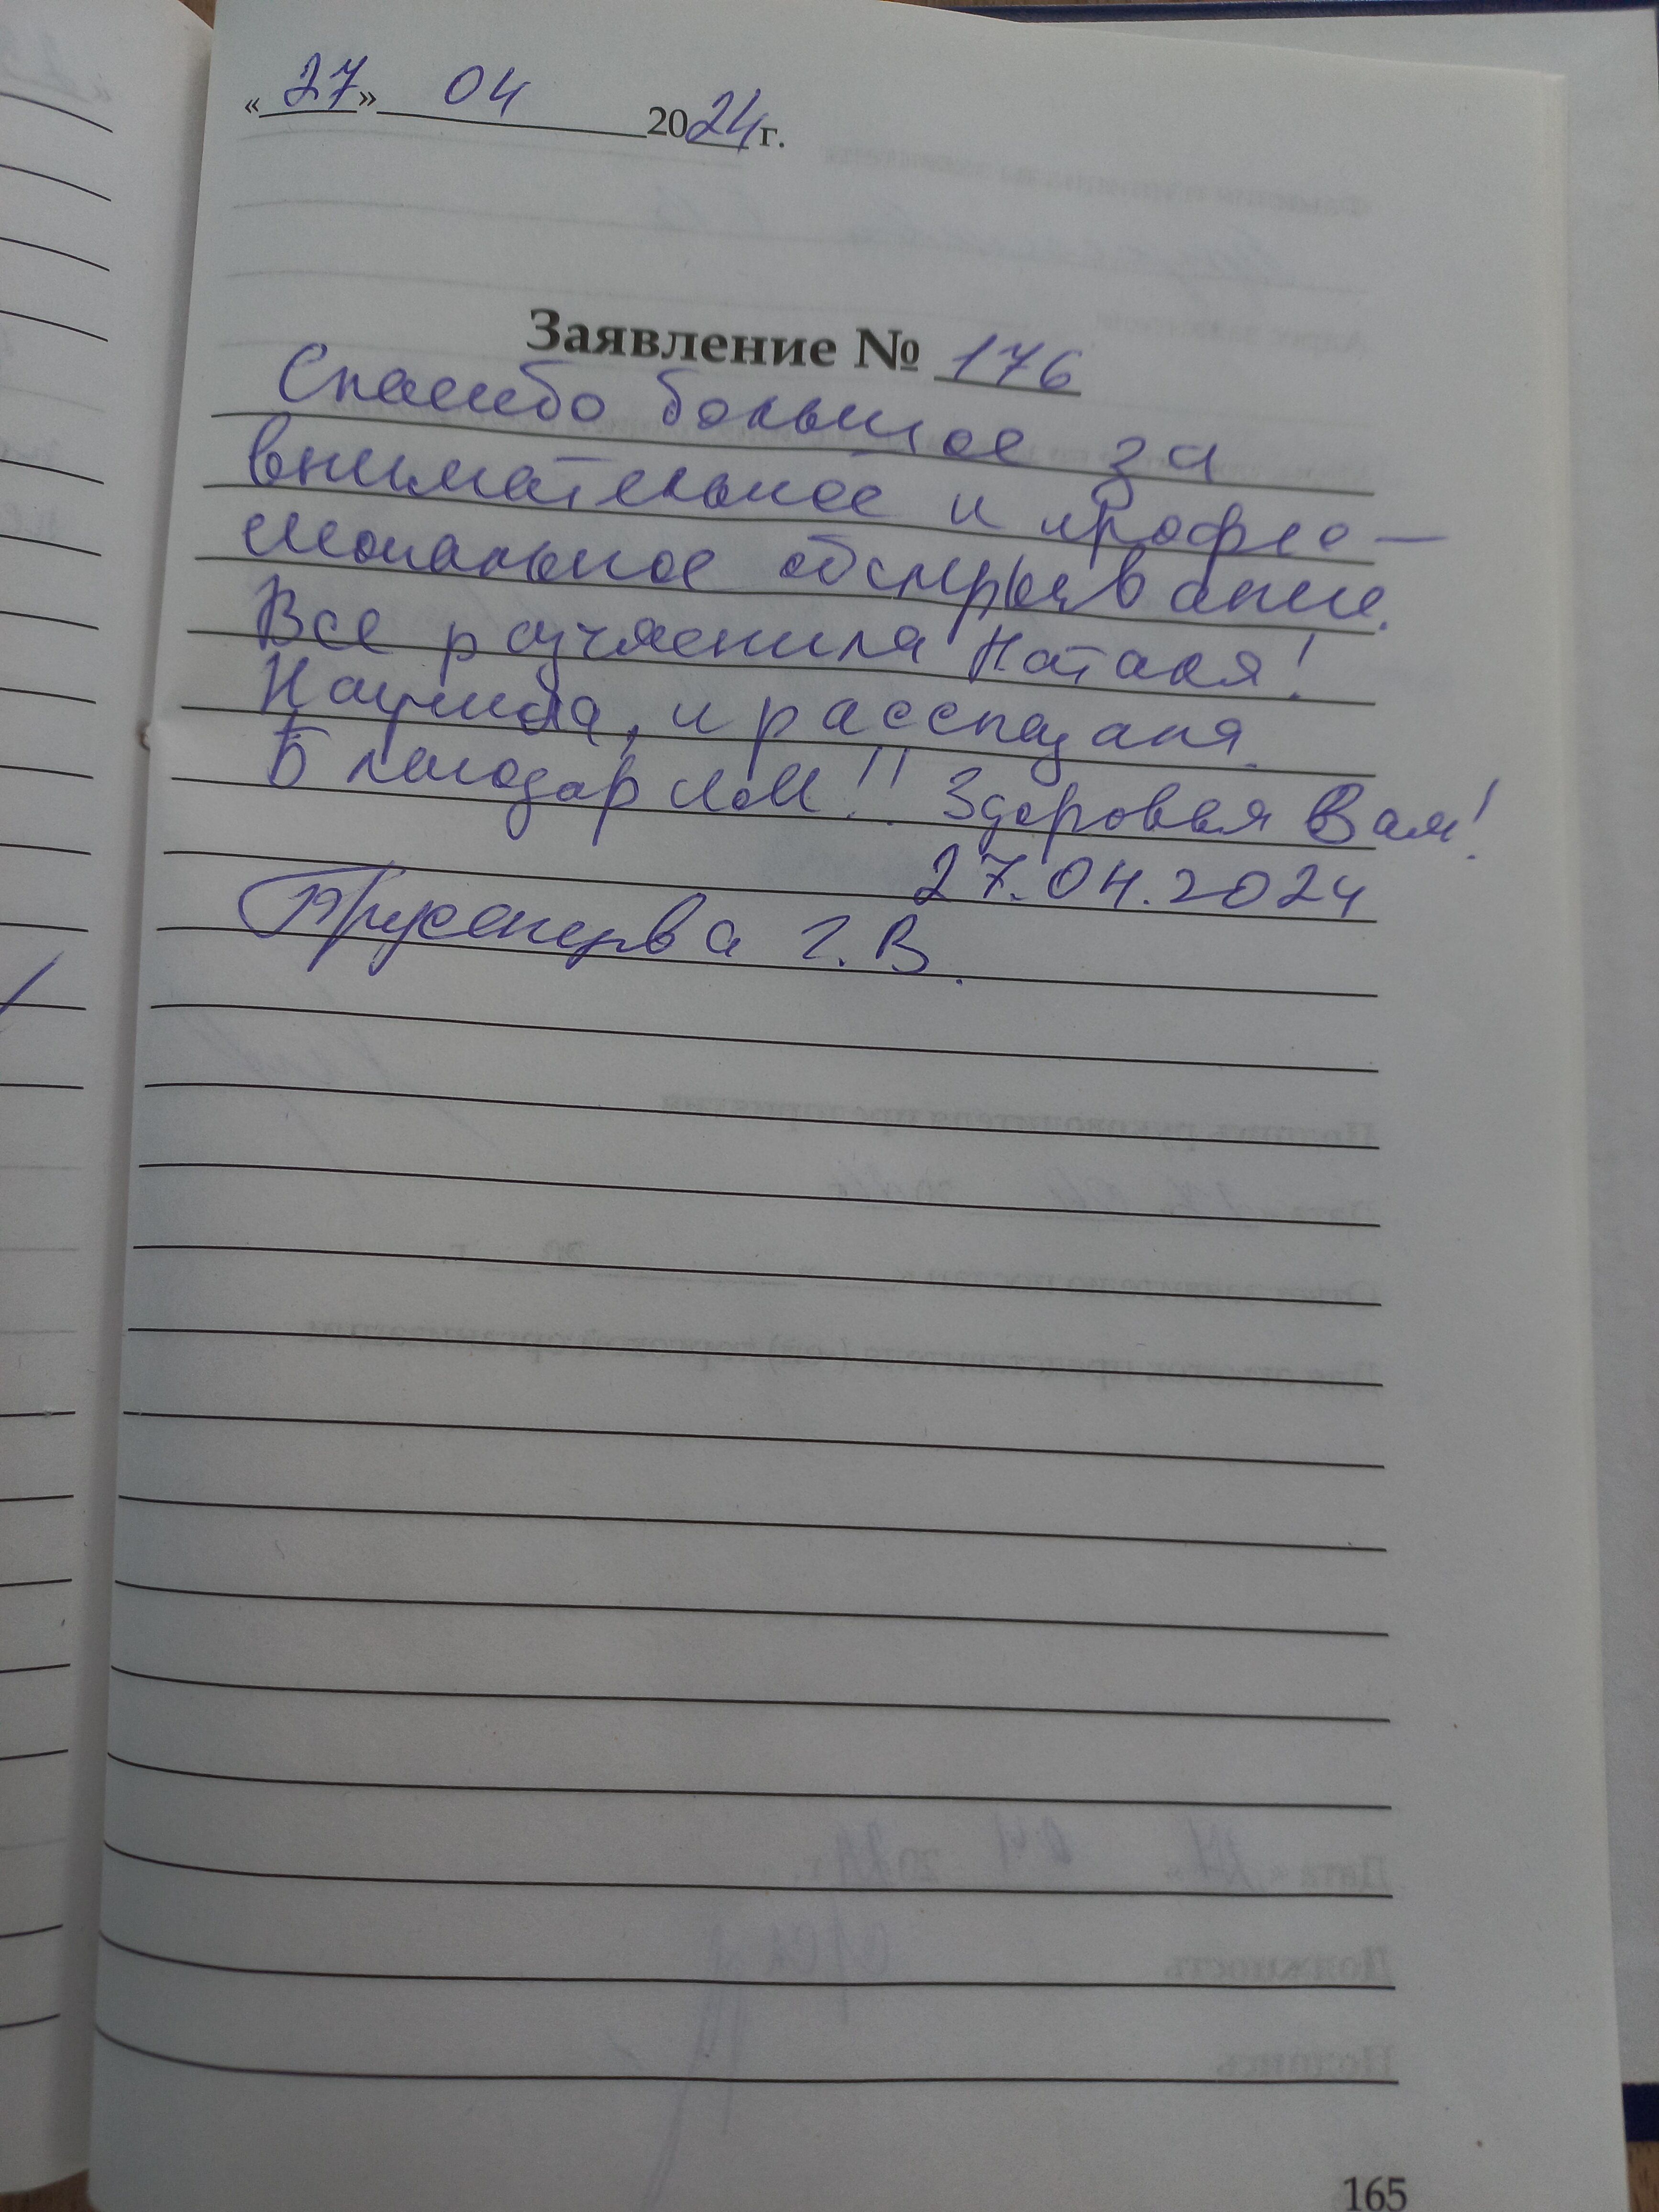 «27» 04 2024 г.
Заявление № 176
Спасибо большое за
внимательное и профес-
сиональное обслуживание.
Все разъяснила Наталя!
Научила, и рассказала.
Благодарим!! Здоровья Вам!
27.04.2024
Г.В.
165